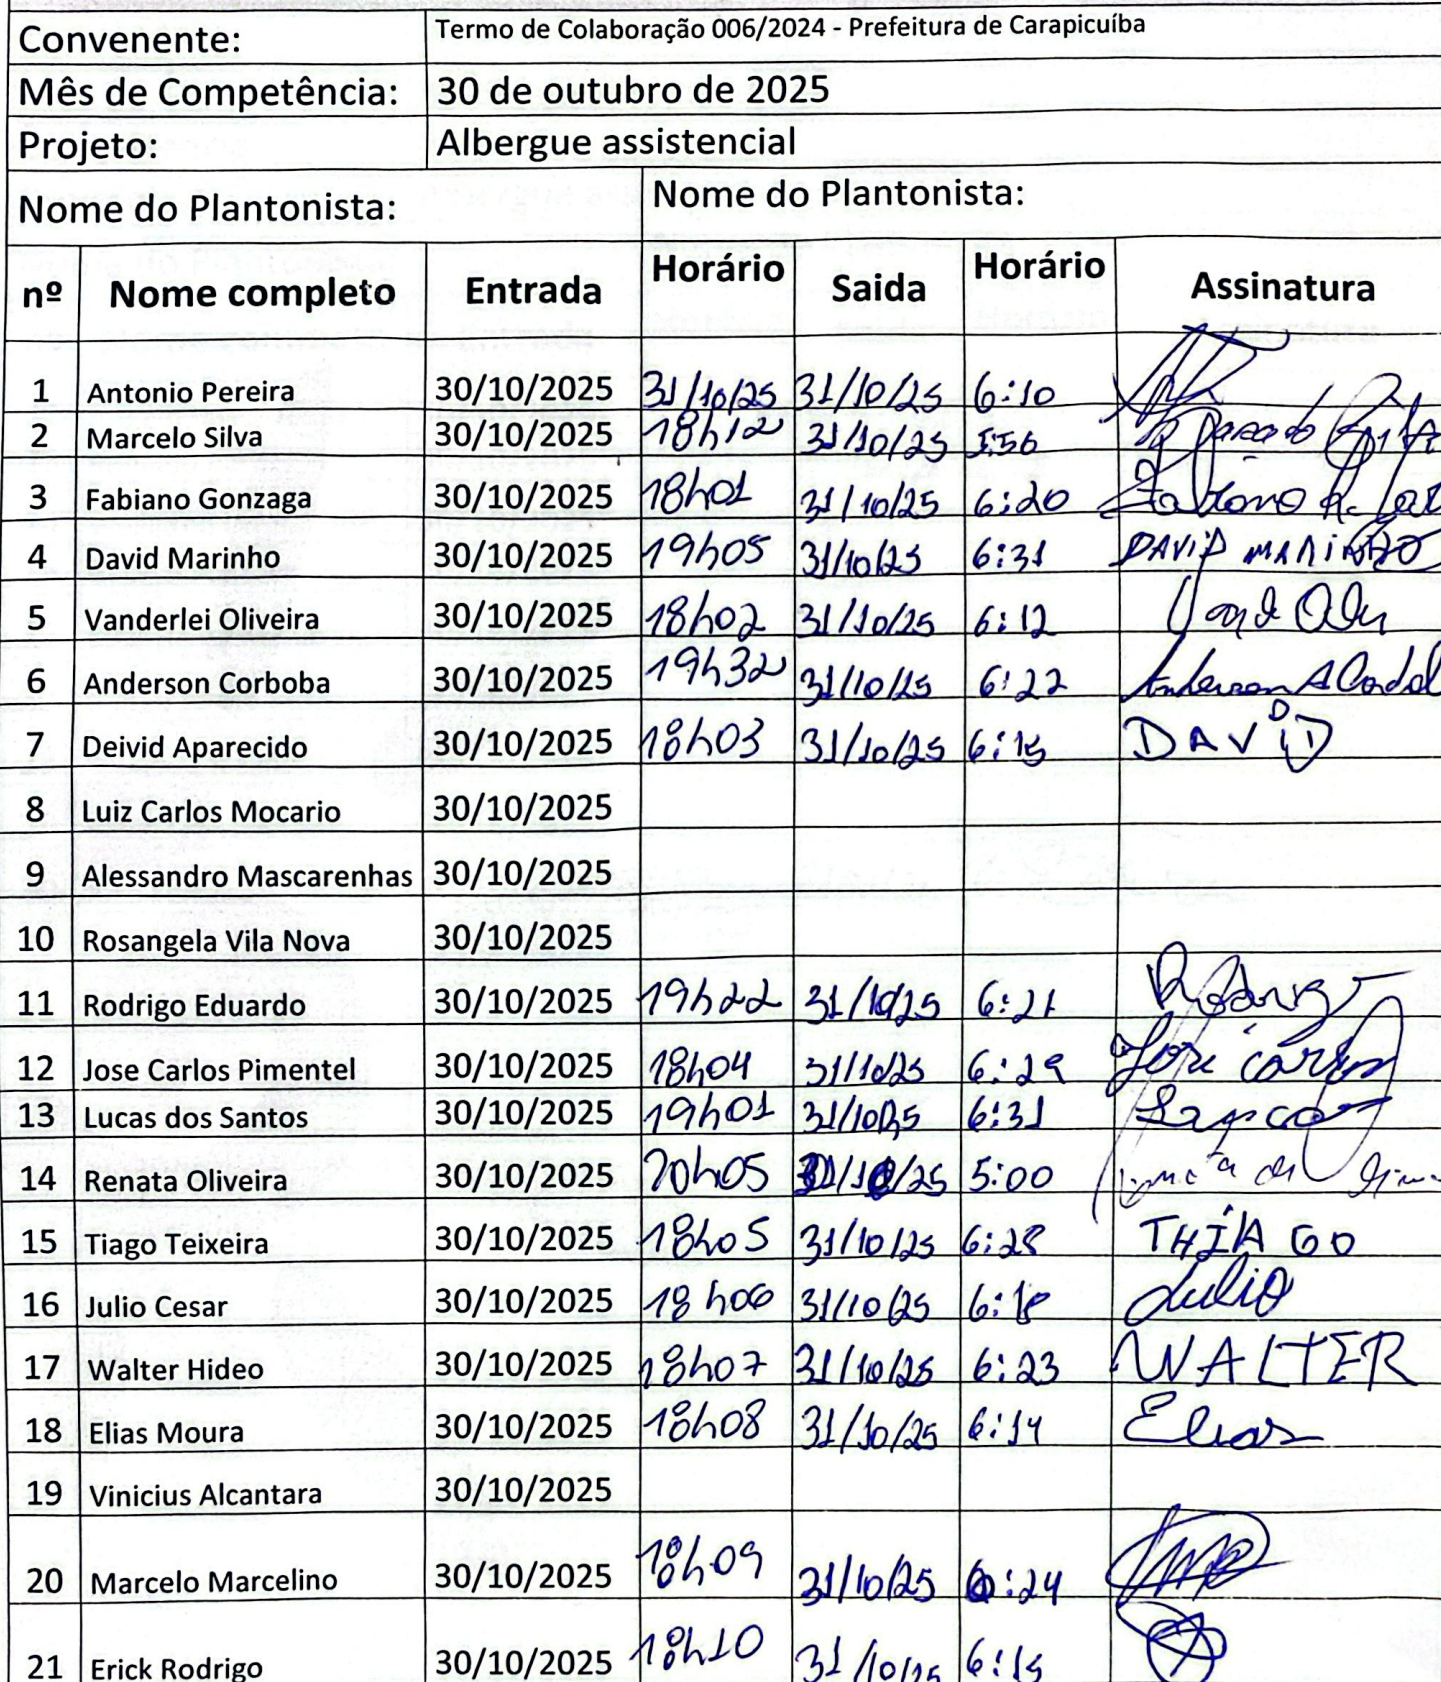 Convenente: Termo de Colaboração 006/2024 - Prefeitura de Carapicuíba
Mês de Competência: 30 de outubro de 2025
Projeto: Albergue assistencial
Nome do Plantonista: Nome do Plantonista:
nº Nome completo Entrada Horário Saida Horário Assinatura
1 Antonio Pereira 30/10/2025 31/10/25 31/10/25 6:10
2 Marcelo Silva 30/10/2025 18h12 31/10/25 5:56
3 Fabiano Gonzaga 30/10/2025 18h01 31/10/25 6:20 Fabiano
4 David Marinho 30/10/2025 19h05 31/10/25 6:31 DAVID MARINHO
5 Vanderlei Oliveira 30/10/2025 18h02 31/10/25 6:12
6 Anderson Corboba 30/10/2025 19h32 31/10/25 6:22 Anderson A
7 Deivid Aparecido 30/10/2025 18h03 31/10/25 6:15 DAViD
8 Luiz Carlos Mocario 30/10/2025
9 Alessandro Mascarenhas 30/10/2025
10 Rosangela Vila Nova 30/10/2025
11 Rodrigo Eduardo 30/10/2025 19h22 31/10/25 6:21
12 Jose Carlos Pimentel 30/10/2025 18h04 31/10/25 6:29 José Carlos
13 Lucas dos Santos 30/10/2025 19h01 31/10/25 6:31
14 Renata Oliveira 30/10/2025 20h05 31/10/25 5:00
15 Tiago Teixeira 30/10/2025 18h05 31/10/25 6:28 THIAGO
16 Julio Cesar 30/10/2025 18h06 31/10/25 6:18 Julio
17 Walter Hideo 30/10/2025 18h07 31/10/25 6:23 WALTER
18 Elias Moura 30/10/2025 18h08 31/10/25 6:14 Elias
19 Vinicius Alcantara 30/10/2025
20 Marcelo Marcelino 30/10/2025 18h09 31/10/25 6:24
21 Erick Rodrigo 30/10/2025 18h10 31/10/25 6:15